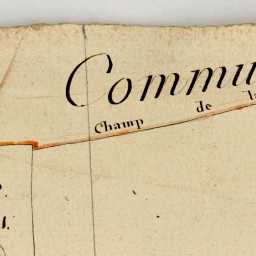 Commu
Champ de la